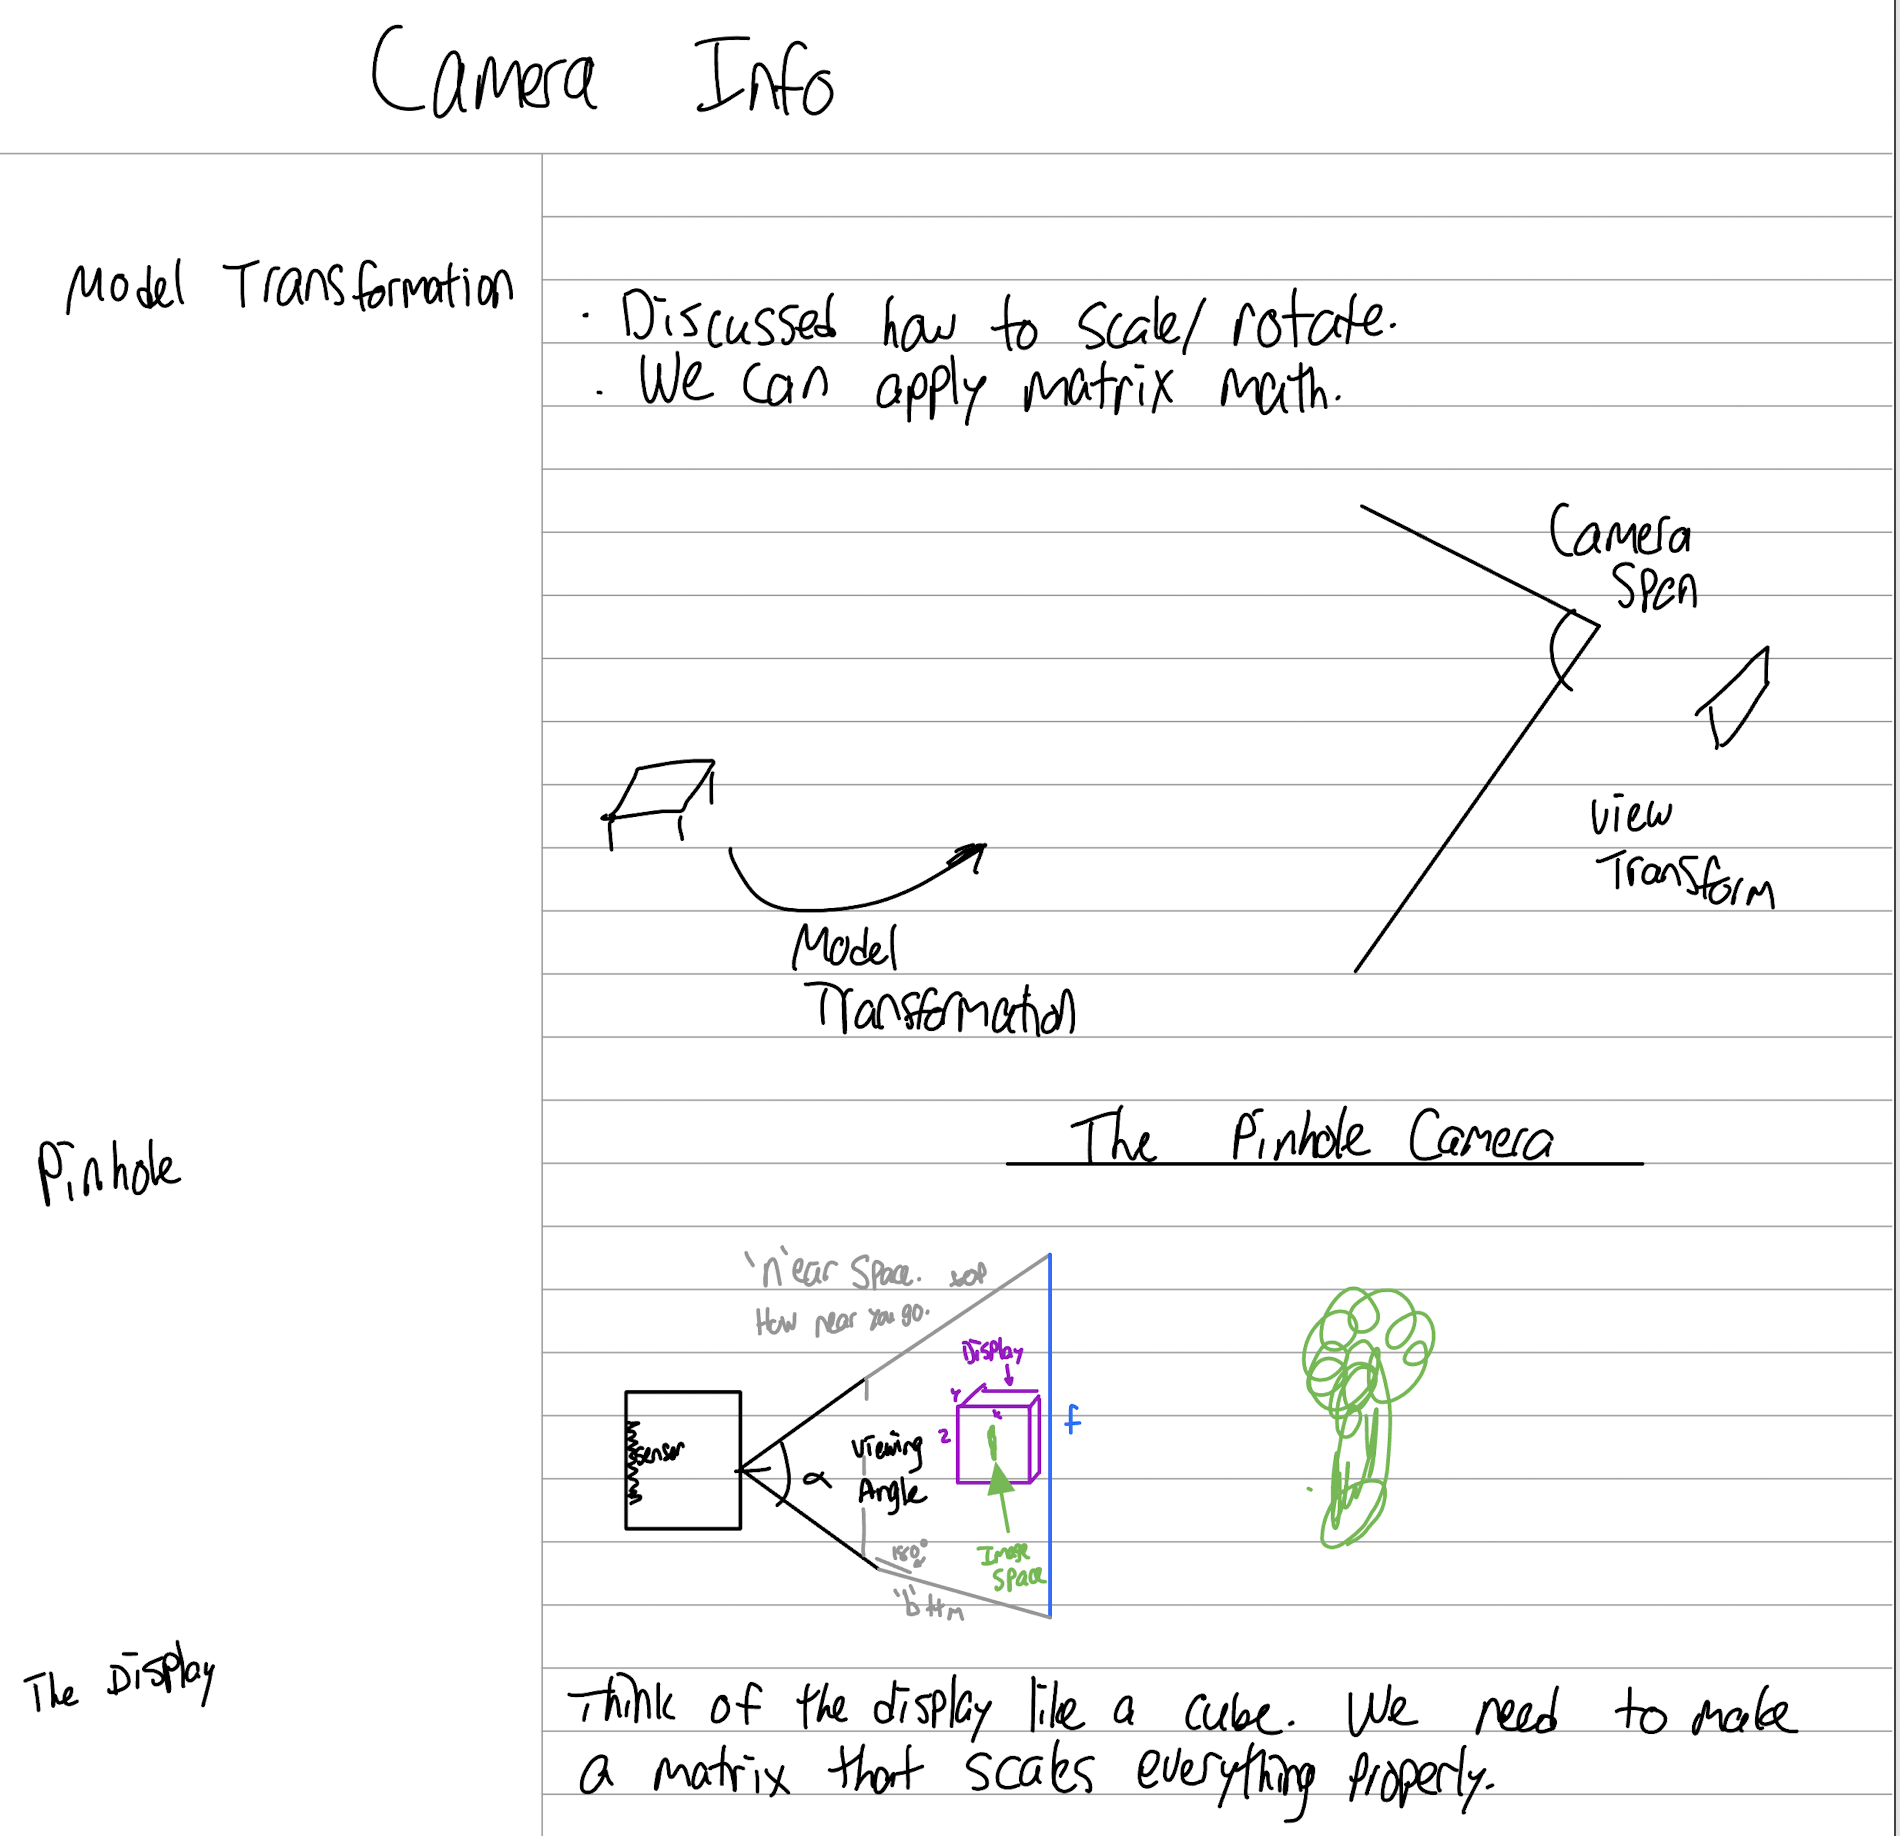 Camera Info
Model Transformation
· Discussed how to scale/ rotate.
· We can apply matrix math.
Camera
Span
View
Transform
Model
Transformation
Pinhole
The Pinhole Camera
'n'ear Space. top
How near you go.
Display
Y
x
z
f
sensor
α
Viewing
Angle
180°
Image
Space
'b'ttm
The Display
Think of the display like a cube. We need to make
a matrix that scales everything properly.